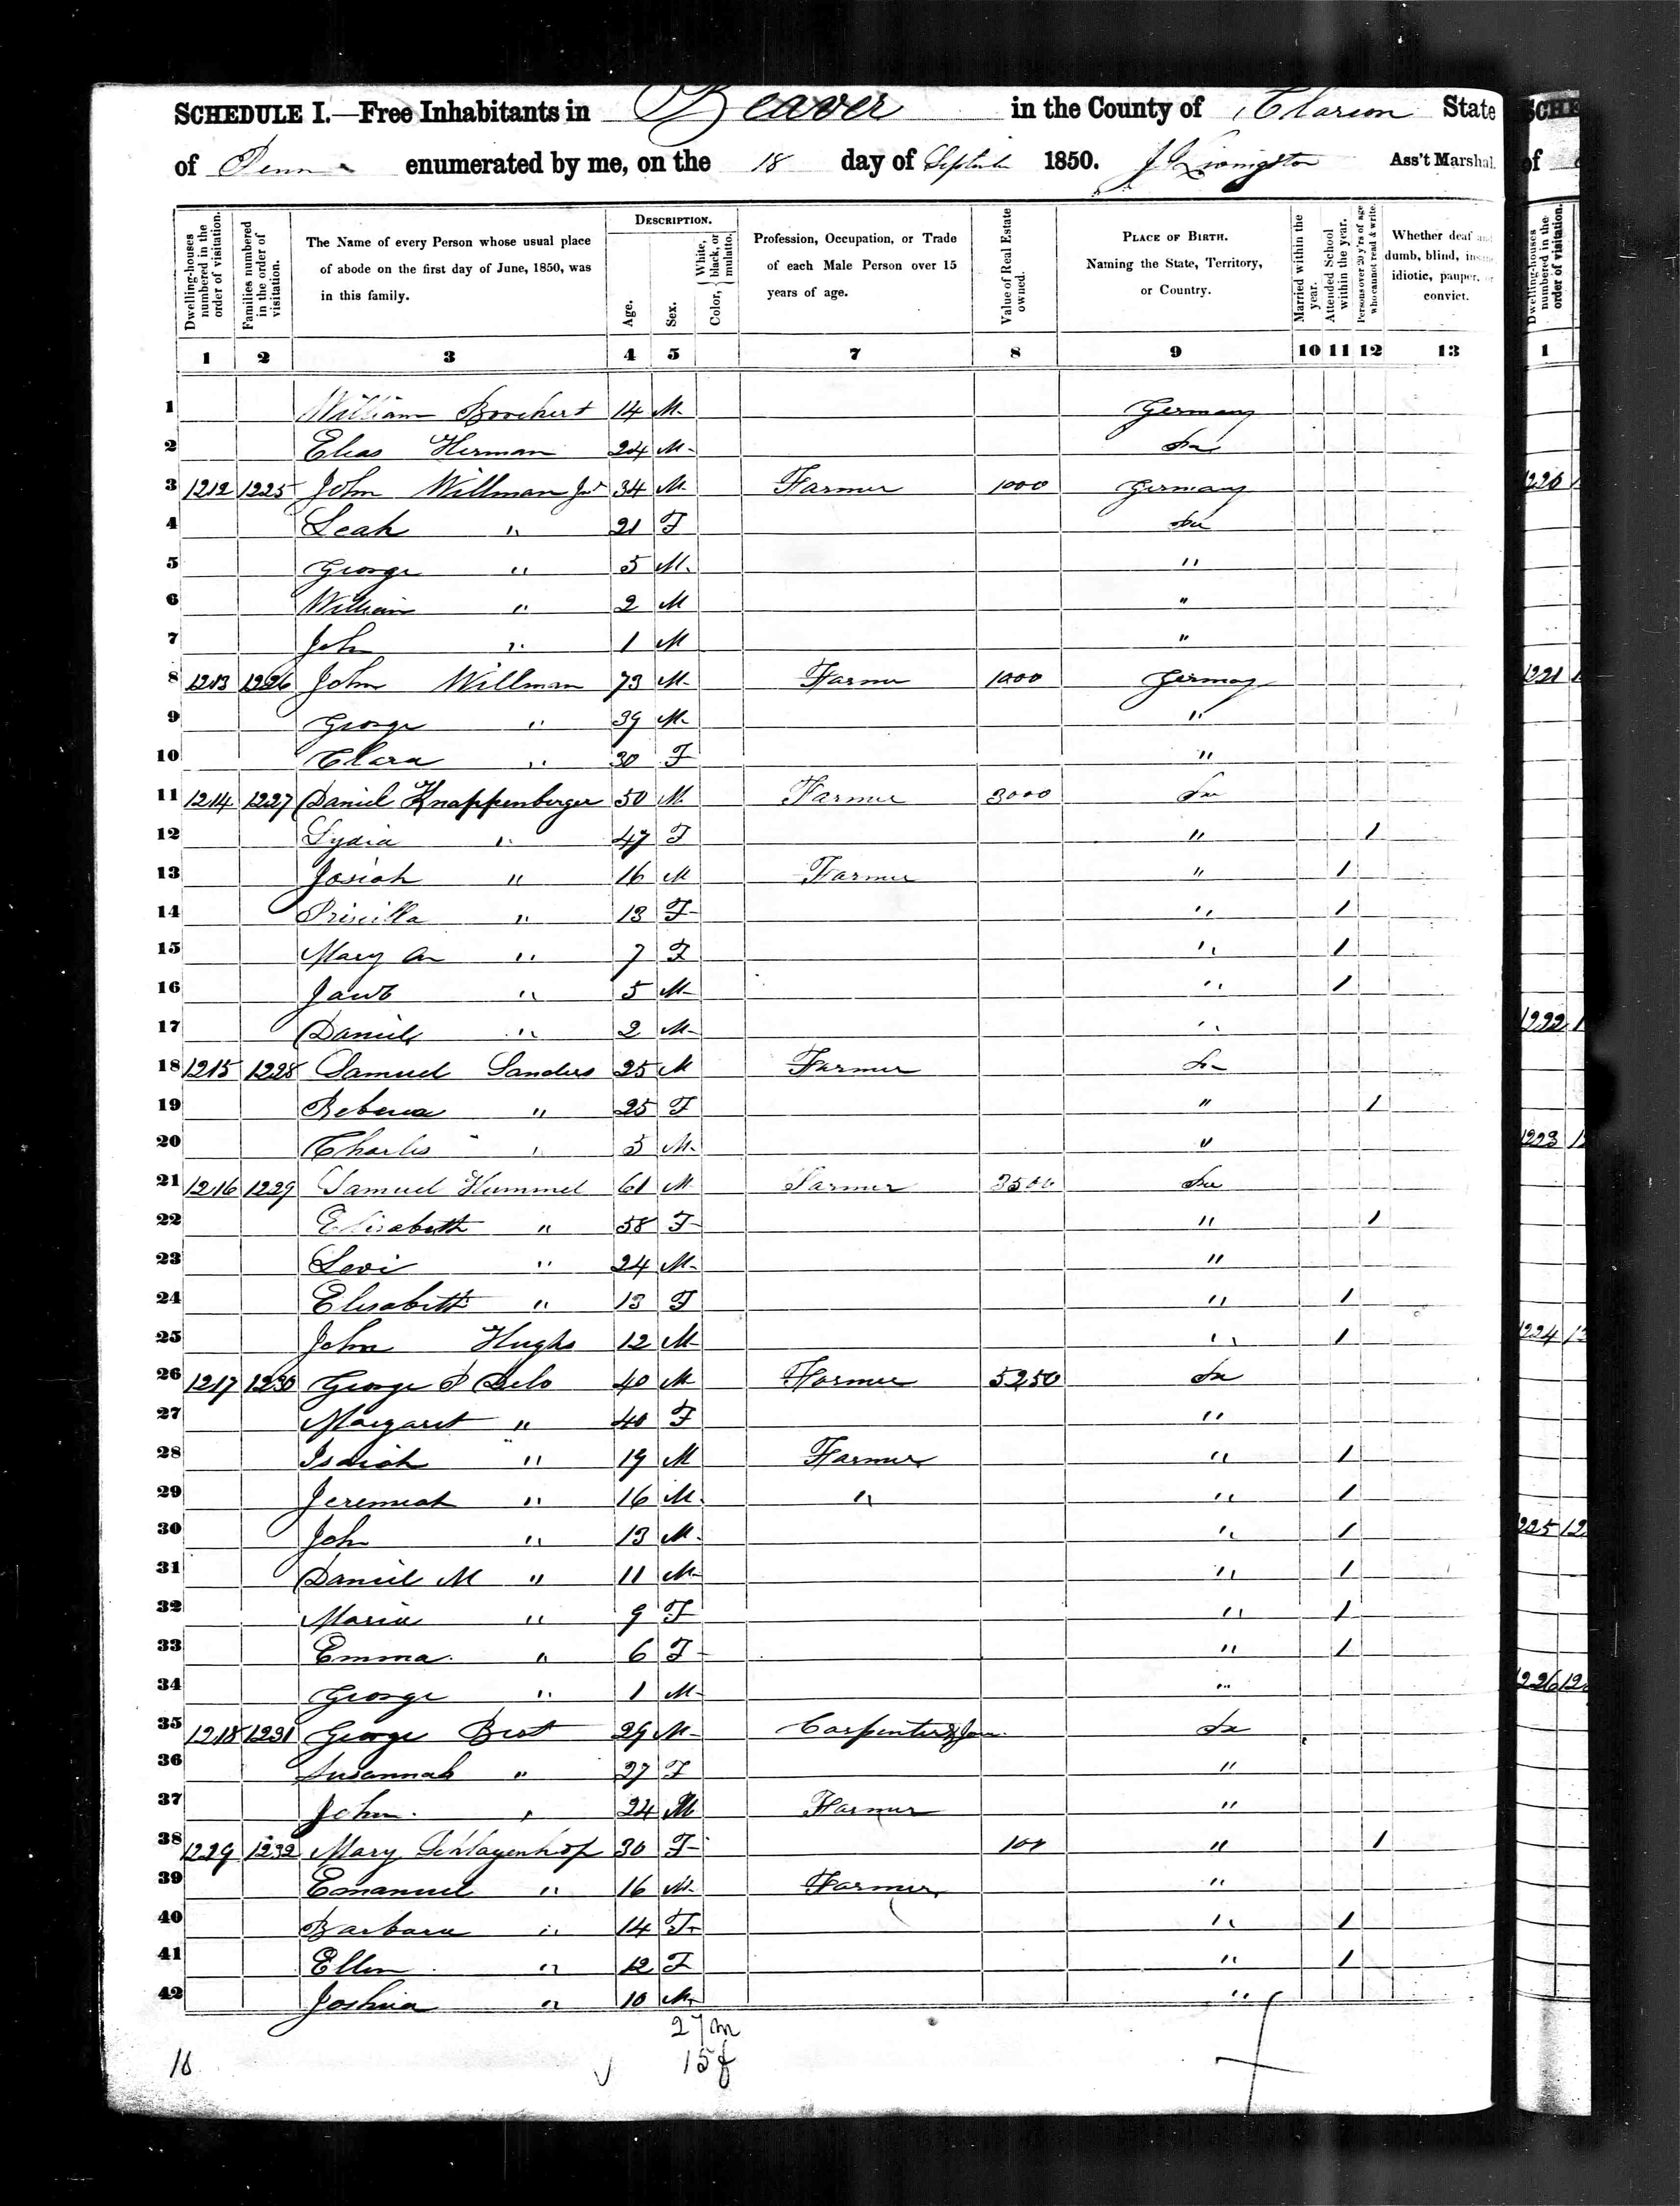 SCHEDULE I.—Free Inhabitants in Beaver in the County of Clarion State
of Penna enumerated by me, on the 18 day of September 1850. J Livingston Ass't Marshal.
Dwelling-houses numbered in the order of visitation.
Families numbered in the order of visitation.
The Name of every Person whose usual place of abode on the first day of June, 1850, was in this family.
DESCRIPTION.
Age.
Sex.
Color, { White, black, or mulatto.
Profession, Occupation, or Trade of each Male Person over 15 years of age.
Value of Real Estate owned.
PLACE OF BIRTH. Naming the State, Territory, or Country.
Married within the year.
Attended School within the year.
Persons over 20 y'rs of age who cannot read & write.
Whether deaf and dumb, blind, insane, idiotic, pauper, or convict.
1 2 3 4 5 7 8 9 10 11 12 13
1 William 14 M Germany
2 Elias Herman 24 M
3 1212 1225 John Willman Jr 34 M Farmer 1000 Germany
4 Leah " 21 F
5 George " 5 M "
6 William " 2 M "
7 John " 1 M "
8 1213 1226 John Willman 73 M Farmer 1000 Germany
9 George " 39 M "
10 Clara " 30 F "
11 1214 1227 Daniel Knappenberger 50 M Farmer 3000
12 Lydia " 47 F " 1
13 Josiah " 16 M Farmer " 1
14 Priscilla " 13 F " 1
15 Mary An " 7 F " 1
16 Jacob " 5 M " 1
17 Daniel " 2 M "
18 1215 1228 Samuel Sanders 25 M Farmer
19 Rebecca " 25 F " 1
20 Charles " 3 M "
21 1216 1229 Samuel Hummel 61 M Farmer 3500
22 Elisabeth " 58 F " 1
23 Levi " 24 M "
24 Elisabeth " 13 F " 1
25 John Hughs 12 M " 1
26 1217 1230 George P Delo 40 M Farmer 5250
27 Margaret " 40 F "
28 Isaiah " 19 M Farmer " 1
29 Jeremiah " 16 M " " 1
30 John " 13 M " 1
31 Daniel M " 11 M " 1
32 Maria " 9 F " 1
33 Emma " 6 F " 1
34 George " 1 M "
35 1218 1231 George Best 29 M Carpenter
36 Susannah " 27 F "
37 John " 24 M Farmer "
38 1219 1232 Mary Schlagenhof 30 F 100 " 1
39 Emanuel " 16 M Farmer "
40 Barbara " 14 F " 1
41 Ellen " 12 F " 1
42 Joshua " 10 M "
27 m
15 f